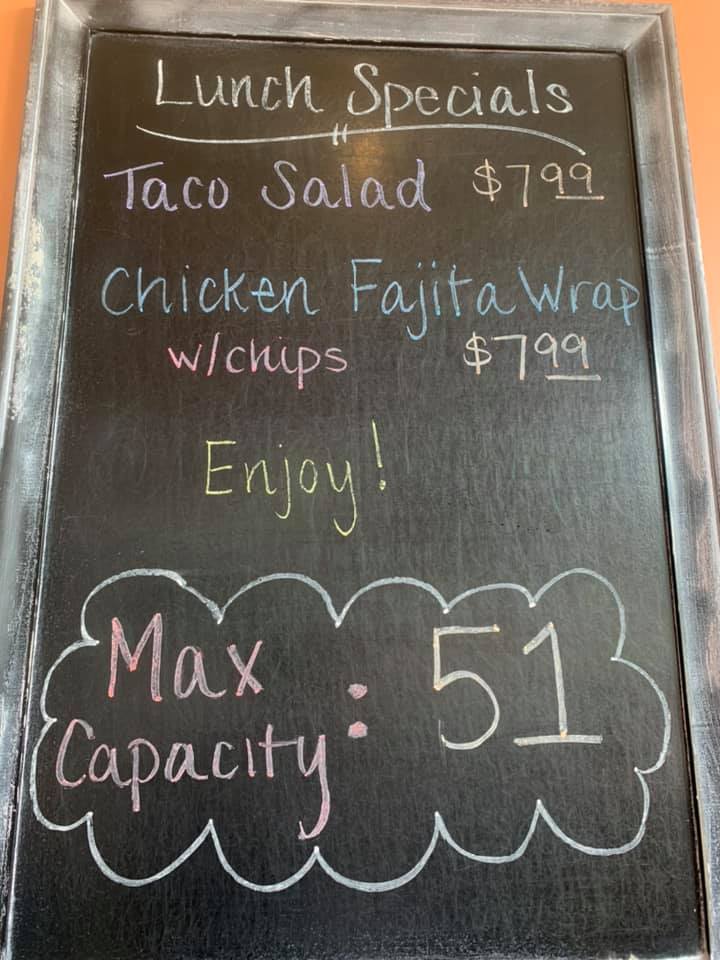 Lunch Specials
Taco Salad $799
Chicken Fajita Wrap
w/chips $799
Enjoy!
Max
Capacity : 51